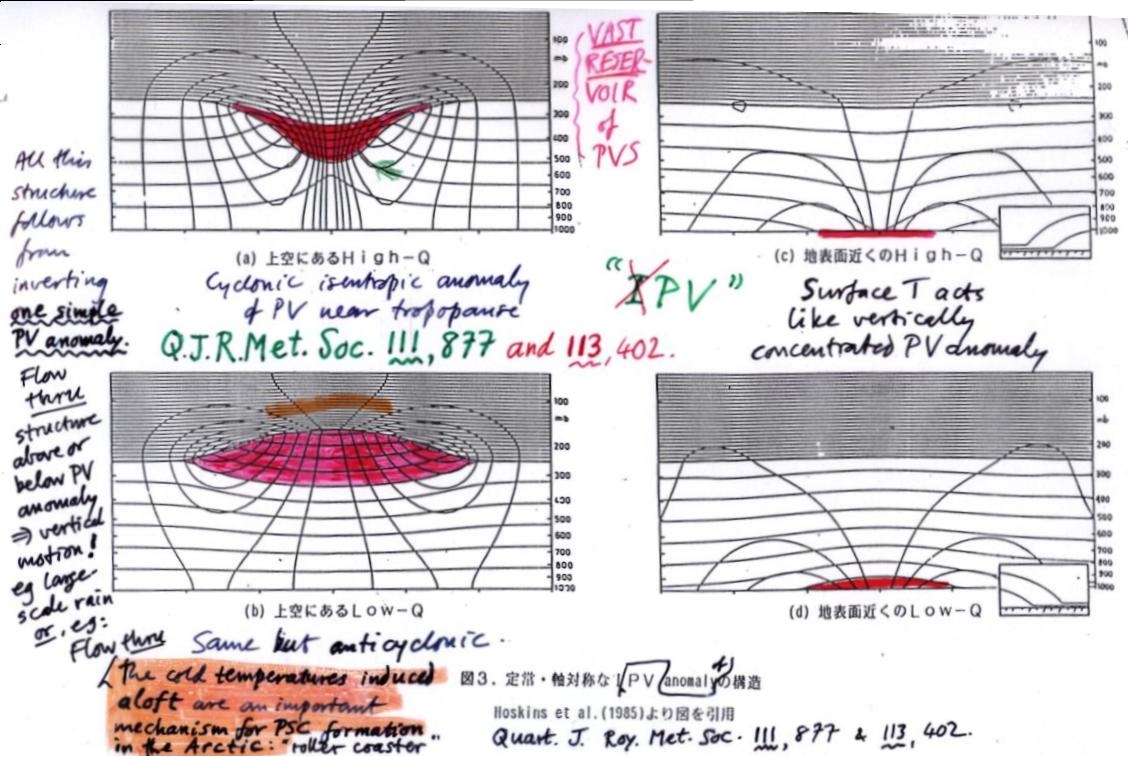 100
mb
200
300
400
500
600
700
800
900
1000
VAST
RESER-
VOIR
of
PVS
100
mb
200
300
400
500
600
700
800
900
1000
All this
structure
follows
from
inverting
one simple
PV anomaly.
Flow
thru
structure
above or
below PV
anomaly
⇒ vertical
motion!
eg large-
scale rain
or, eg:
Flow thru
(a) 上空にあるHigh-Q
Cyclonic isentropic anomaly
of PV near tropopause
"IPV"
(c) 地表面近くのHigh-Q
Surface T acts
like vertically
concentrated PV anomaly
Q.J.R.Met. Soc. 111, 877 and 113, 402.
100
mb
200
300
400
500
600
700
800
900
1000
100
mb
200
300
400
500
600
700
800
900
1000
(b) 上空にあるLow-Q
(d) 地表面近くのLow-Q
Same but anticyclonic.
(The cold temperatures induced
aloft are an important
mechanism for PSC formation
in the Arctic: "roller coaster"
図3. 定常・軸対称なIPV anomalyの構造
Hoskins et al.(1985)より図を引用
Quart. J. Roy. Met. Soc. 111, 877 & 113, 402.